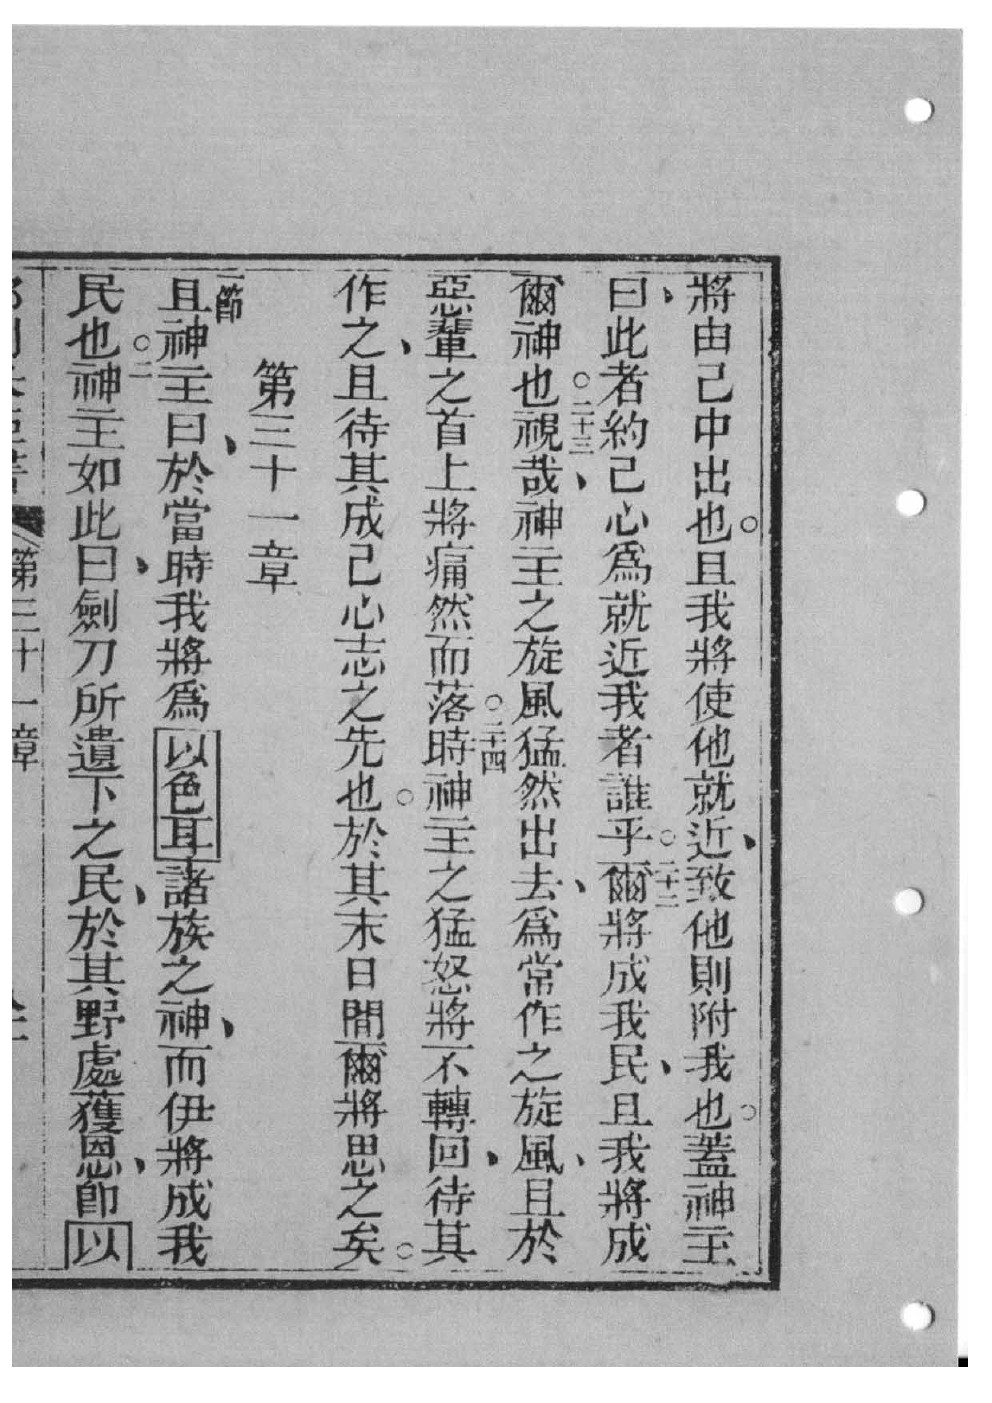 將由己中出也。且我將使他就近、致他則附我也。蓋神主
曰、此者約己心為就近我者誰乎。二十二爾將成我民、且我將成
爾神也。二十三視哉、神主之旋風猛然出去、為常作之旋風、且於
惡輩之首上將痛然而落。二十四時神主之猛怒將不轉回、待其
作之、且待其成己心志之先也。於其末日間爾將思之矣。
第三十一章
一節且神主曰、於當時我將為以色耳諸族之神、而伊將成我
民也。二神主如此曰、劍刀所遺下之民、於其野處獲恩、即以
第三十一章